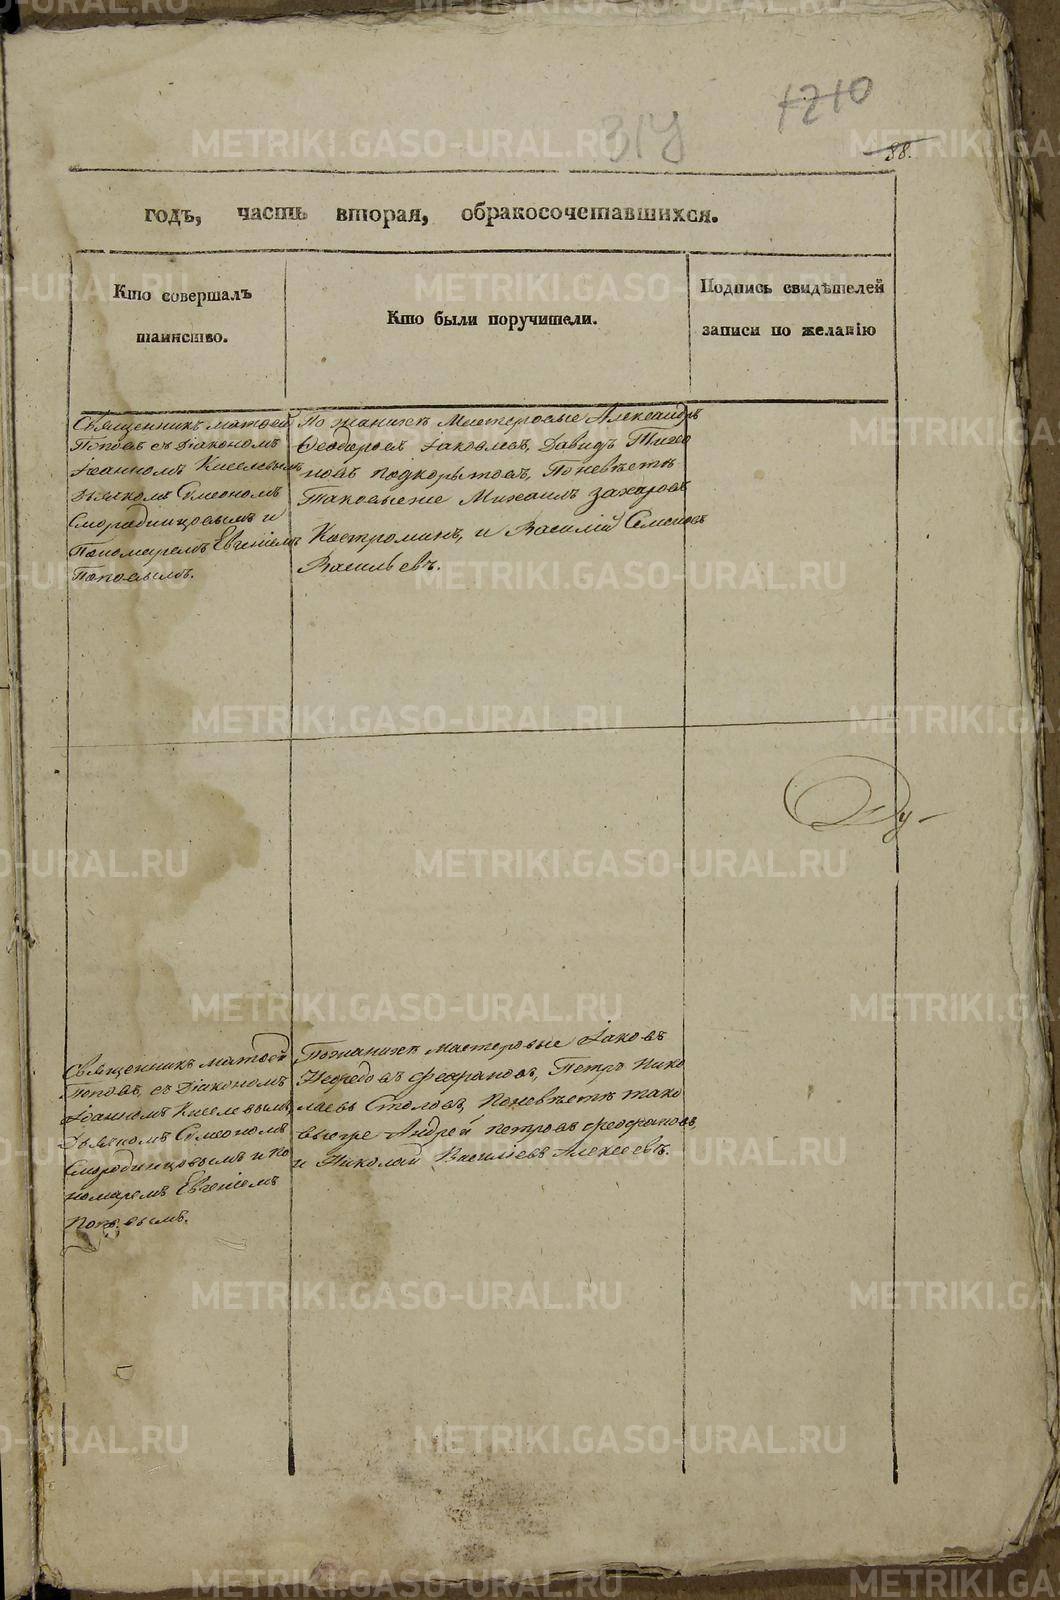 1210
314
88.
годъ, часть вторая, обракосочетавшихся.
Кто совершалъ
таинство.
Кто были поручители.
Подпись свидѣтелей
записи по желанію
Священникъ Матѳей
Поповъ съ Діакономъ
Іоанномъ Киселевымъ
Дьячкомъ Симеономъ
Смородинцовымъ и
Пономаремъ Евгеніемъ
Поповымъ.
По женихѣ Мастеровые Александръ
Ѳеодоровъ Іаковлевъ, Давидъ Тихо
новъ Подкорытовъ, По невѣстѣ
Таковыеже Михаилъ Захаровъ
Костроминъ, и Василій Семеновъ
Васильевъ.
Ду-
Священникъ Матѳей
Поповъ, съ Діакономъ
Іоанномъ Киселевымъ,
Дьячкомъ Симеономъ
Смородинцовымъ и по
номаремъ Евгеніемъ
Поповымъ.
По женихѣ мастеровые Іаковъ
Феофановъ, Петръ Нико
лаевъ Столовъ, По невѣстѣ тако
выеже Андрей Петровъ Феофановъ,
и Николай Васильевъ Алексеевъ.
METRIKI.GASO-URAL.RU